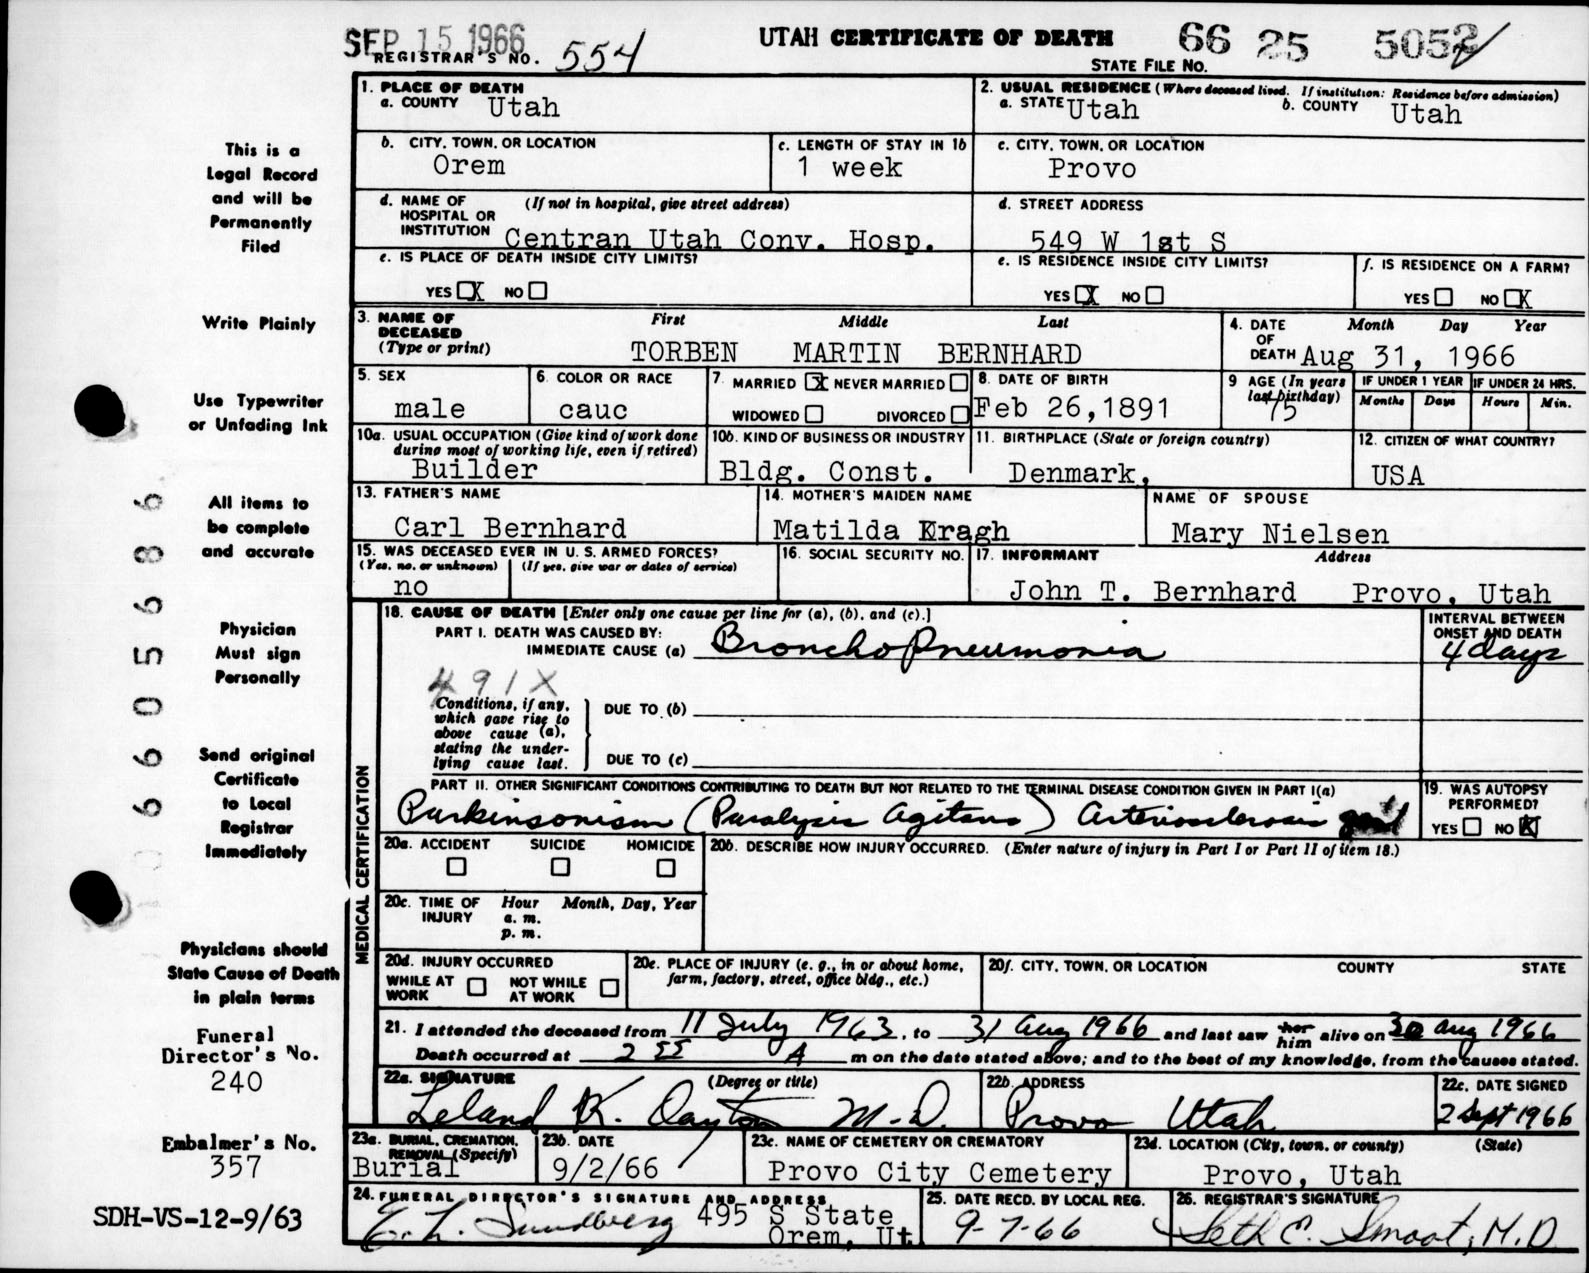 SEP 15 1966
REGISTRAR'S NO. 554
UTAH CERTIFICATE OF DEATH
66 25 5052
STATE FILE NO.
This is a
Legal Record
and will be
Permanently
Filed
Write Plainly
Use Typewriter
or Unfading Ink
All items to
be complete
and accurate
Physician
Must sign
Personally
Send original
Certificate
to Local
Registrar
Immediately
Physicians should
State Cause of Death
in plain terms
Funeral
Director's No.
240
Embalmer's No.
357
SDH-VS-12-9/63
1. PLACE OF DEATH
a. COUNTY Utah
2. USUAL RESIDENCE (Where deceased lived. If institution: Residence before admission)
a. STATE Utah b. COUNTY Utah
b. CITY, TOWN, OR LOCATION
Orem
c. LENGTH OF STAY IN 1b
1 week
c. CITY, TOWN, OR LOCATION
Provo
d. NAME OF (If not in hospital, give street address)
HOSPITAL OR
INSTITUTION Centran Utah Conv. Hosp.
d. STREET ADDRESS
549 W 1st S
e. IS PLACE OF DEATH INSIDE CITY LIMITS?
YES X NO
e. IS RESIDENCE INSIDE CITY LIMITS?
YES X NO
f. IS RESIDENCE ON A FARM?
YES NO X
3. NAME OF First Middle Last
DECEASED
(Type or print) TORBEN MARTIN BERNHARD
4. DATE Month Day Year
OF
DEATH Aug 31, 1966
5. SEX
male
6. COLOR OR RACE
cauc
7. MARRIED X NEVER MARRIED
WIDOWED DIVORCED
8. DATE OF BIRTH
Feb 26,1891
9 AGE (In years
last birthday)
75
IF UNDER 1 YEAR IF UNDER 24 HRS.
Months Days Hours Min.
10a. USUAL OCCUPATION (Give kind of work done
during most of working life, even if retired)
Builder
10b. KIND OF BUSINESS OR INDUSTRY
Bldg. Const.
11. BIRTHPLACE (State or foreign country)
Denmark,
12. CITIZEN OF WHAT COUNTRY?
USA
13. FATHER'S NAME
Carl Bernhard
14. MOTHER'S MAIDEN NAME
Matilda Kragh
NAME OF SPOUSE
Mary Nielsen
15. WAS DECEASED EVER IN U. S. ARMED FORCES?
(Yes, no, or unknown) (If yes, give war or dates of service)
no
16. SOCIAL SECURITY NO.
17. INFORMANT Address
John T. Bernhard Provo, Utah
MEDICAL CERTIFICATION
18. CAUSE OF DEATH [Enter only one cause per line for (a), (b), and (c).]
PART I. DEATH WAS CAUSED BY:
IMMEDIATE CAUSE (a) BronchoPneumonia
INTERVAL BETWEEN
ONSET AND DEATH
4 days
491X
Conditions, if any,
which gave rise to
above cause (a),
stating the under-
lying cause last.
DUE TO (b)
DUE TO (c)
PART II. OTHER SIGNIFICANT CONDITIONS CONTRIBUTING TO DEATH BUT NOT RELATED TO THE TERMINAL DISEASE CONDITION GIVEN IN PART I(a)
Parkinsonism (Paralysis Agitans) Arteriosclerosis
19. WAS AUTOPSY
PERFORMED?
YES NO X
20a. ACCIDENT SUICIDE HOMICIDE
20b. DESCRIBE HOW INJURY OCCURRED. (Enter nature of injury in Part I or Part II of item 18.)
20c. TIME OF Hour Month, Day, Year
INJURY a. m.
p. m.
20d. INJURY OCCURRED
WHILE AT NOT WHILE
WORK AT WORK
20e. PLACE OF INJURY (e. g., in or about home,
farm, factory, street, office bldg., etc.)
20f. CITY, TOWN, OR LOCATION COUNTY STATE
21. I attended the deceased from 11 July 1963, to 31 Aug 1966 and last saw her him alive on 30 Aug 1966
Death occurred at 2 55 A m on the date stated above; and to the best of my knowledge, from the causes stated.
22a. SIGNATURE (Degree or title)
Leland K. Dayton M.D.
22b. ADDRESS
Provo Utah
22c. DATE SIGNED
2 Sept 1966
23a. BURIAL, CREMATION,
REMOVAL (Specify)
Burial
23b. DATE
9/2/66
23c. NAME OF CEMETERY OR CREMATORY
Provo City Cemetery
23d. LOCATION (City, town, or county) (State)
Provo, Utah
24. FUNERAL DIRECTOR'S SIGNATURE AND ADDRESS
E. L. Sundberg 495 S State
Orem, Ut
25. DATE RECD. BY LOCAL REG.
9-7-66
26. REGISTRAR'S SIGNATURE
Seth E. Smoot, M.D.